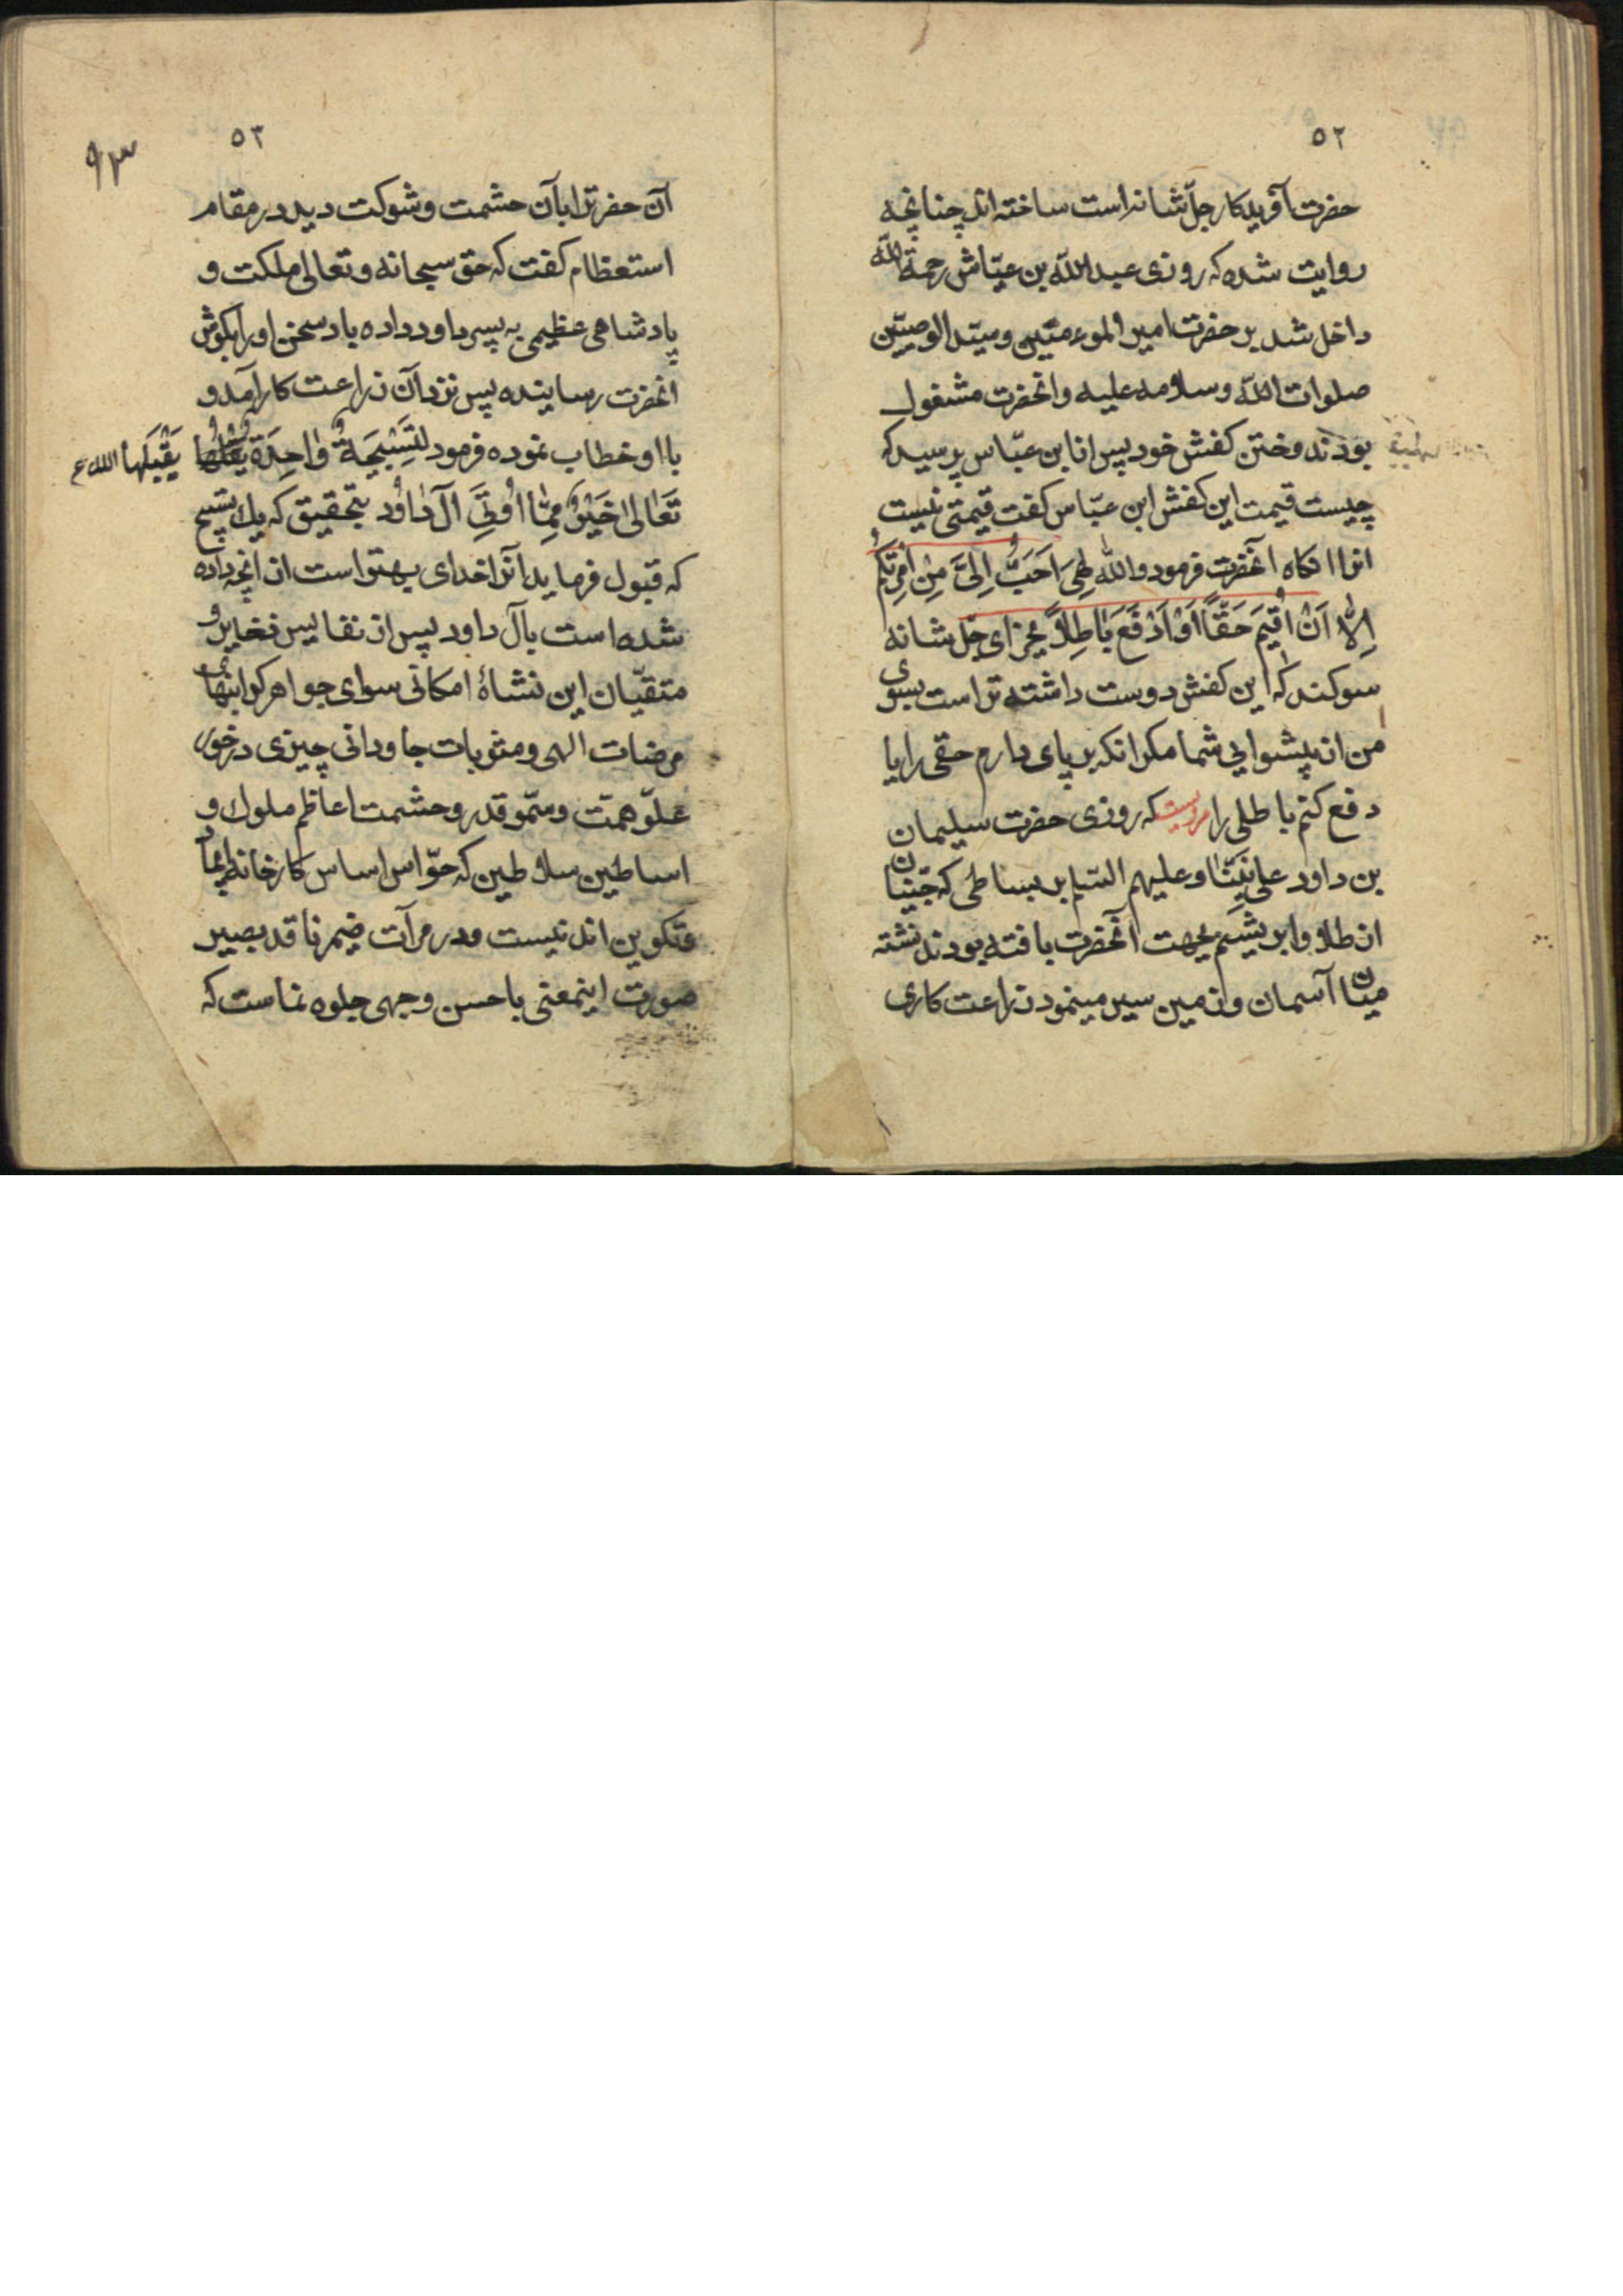 ٥٢
حضرت آفریدکار جلّ شانه است ساخته اند چنانچه
روایت شده که روزی عبد الله بن عبّاس رحمة الله
داخل شد بر حضرت امیر الموءمنین و سیّد الوصیّین
صلوات الله و سلامه علیه و انحضرت مشغول
بودند دوختن کفش خود پس از ابن عبّاس پرسید که
چیست قیمت این کفش ابن عبّاس کفت قیمتی نیست
انرا انکاه آنحضرت فرمود والله لَهِیَ اَحَبُّ اِلَیَّ مِنْ اِمْرَتِکُمْ
اِلّا اَنْ اُقیمَ حَقّاً اَوْ اَدْفَعَ بَاطِلاً بخدای جل شانه
سوکند که این کفش دوست داشته تر است بسوی
من از پیشوایی شما مکر انکه بر پای دارم حقی را یا
دفع کنم باطلی را مرویست که روزی حضرت سلیمان
بن داود علی نبیّنا و علیهم السّلم بر بساطی که جنّیان
از طلا و ابریشم بجهت آنحضرت بافته بودند نشته
میان آسمان و زمین سیر مینمود زراعت کاری
٥٣
٩٣
آن حضرترا بآن حشمت و شوکت دید در مقام
استعظام کفت که حق سبحانه و تعالی ملکت و
پادشاهی عظیمی به پسر داود داده باد سخن او را بکوش
انحضرت رسانیده پس نزد آن زراعت کار آمد و
با او خطاب نموده فرمود لَتَسْبِیحَةٌ وٰاحِدَةٌ یَقْبَلُهَا الله
تَعٰالیٰ خَیْرٌ مِمّٰا اُوتِیَ آلُ دٰاوُد بتحقیق که یك تسبیح
که قبول فرماید آنرا خدای بهتر است از انچه داده
شده است بآل داود پس از نفایس ذخایر و
متقیّان این نشاهٔ امکانی سوای جواهر کرانبهای
مرضات الهی و مثوبات جاودانی چیزی در خور
علوّ همّت و سموّ قدر و حشمت اعاظم ملوك و
اساطین سلاطین که حوّاس اساس کارخانه ایجاد
و تکوین اند نیست و در مرآت ضمیر ناقد بصیر
صورت اینمعنی باحسن وجهی جلوه نماست که